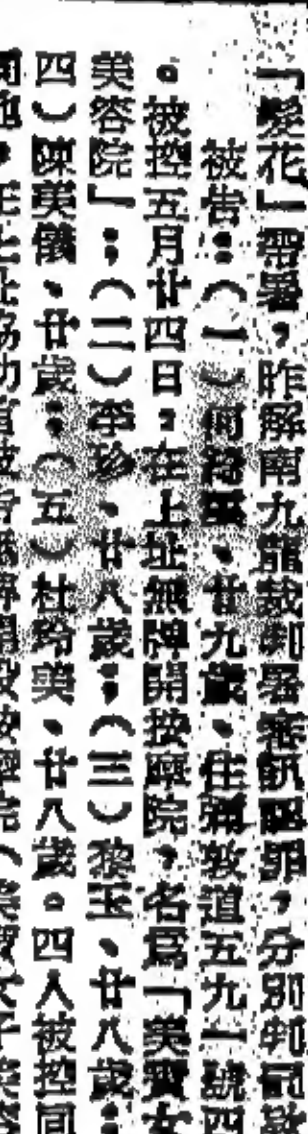 一髮花」帶署，昨解南九龍裁判署審訊認罪，分別判罰款
被告：（一）何 、廿九歲、住彌敦道五九一號四
。被控五月廿四日，在上址無牌開按摩院，名爲「美寶女
美容院」；（二）李珍、廿八歲；（三）黎玉、廿八歲；
四）陳美儀、廿歲；（五）杜玲美、廿八歲。四人被控同